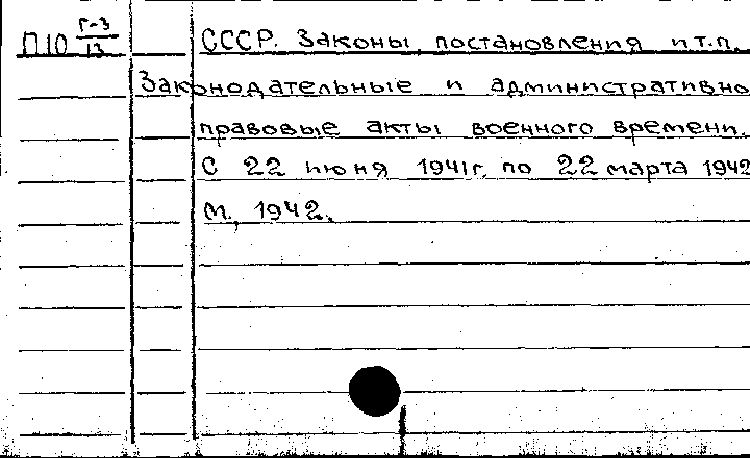 П10 Г-3/13 СССР. Законы, постановления и т.п.
Законодательные и административно
правовые акты военного времени.
С 22 июня 1941г. по 22 марта 1942
М., 1942.